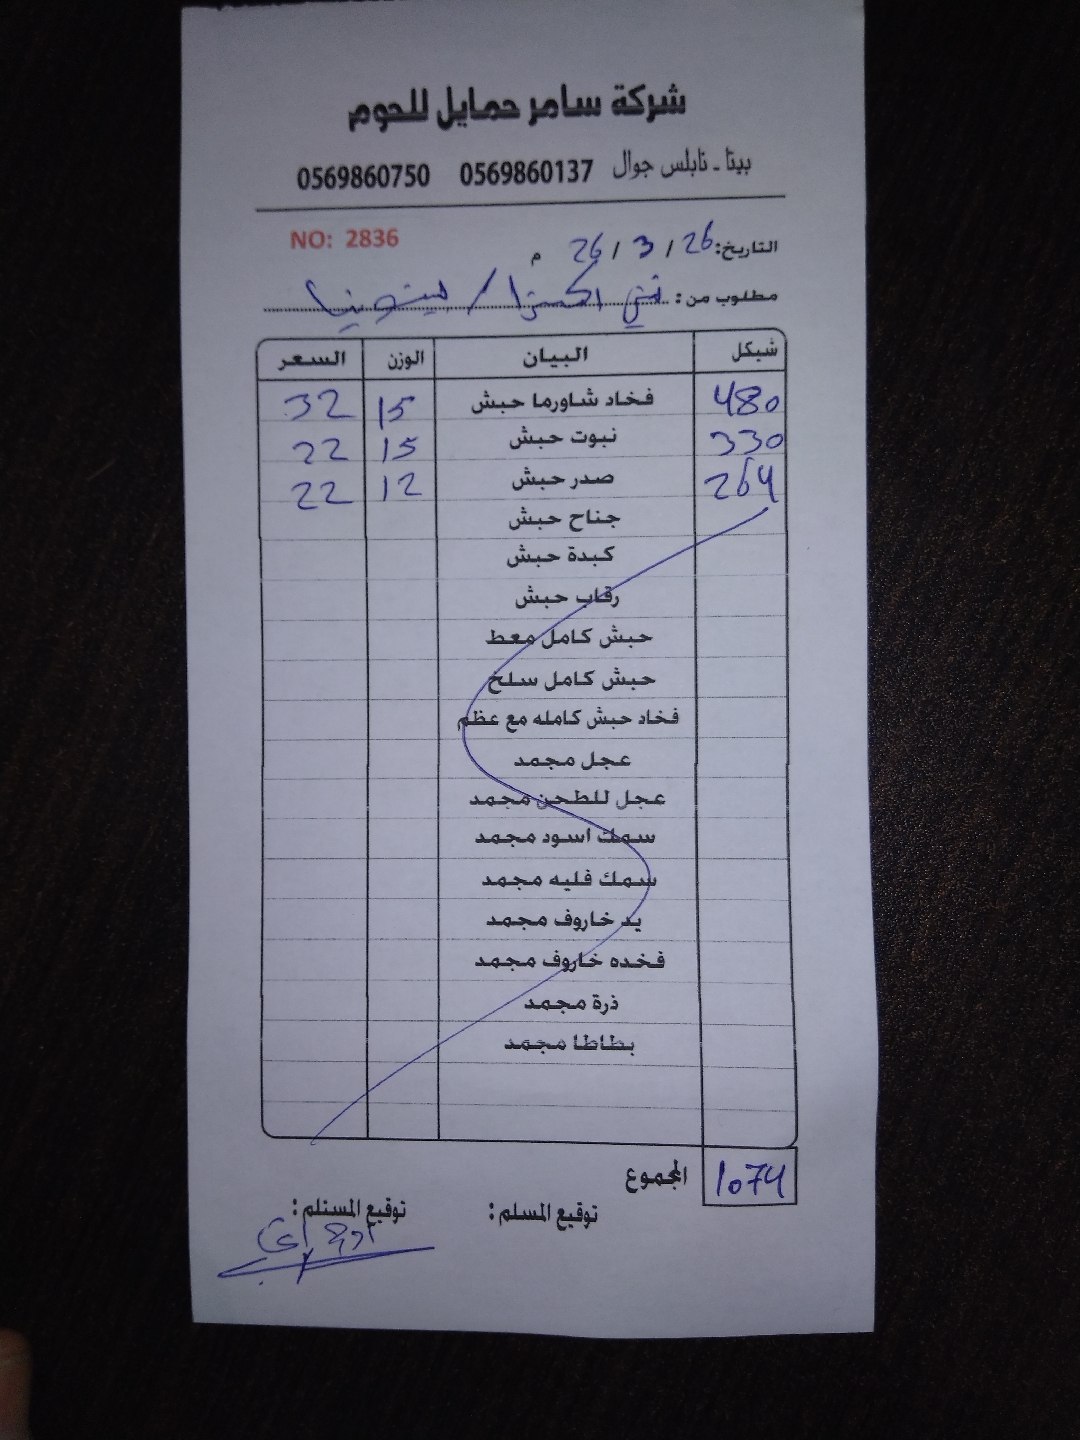 شركة سامر حمايل للحوم
بيتا - نابلس جوال 0569860137 0569860750
NO: 2836
التاريخ: 26 / 3 / 26 م
مطلوب من :
شيكل البيان الوزن السعر
480 فخاد شاورما حبش 15 32
330 نبوت حبش 15 22
264 صدر حبش 12 22
جناح حبش
كبدة حبش
رقاب حبش
حبش كامل معط
حبش كامل سلخ
فخاد حبش كامله مع عظم
عجل مجمد
عجل للطحن مجمد
سمك اسود مجمد
سمك فليه مجمد
يد خاروف مجمد
فخده خاروف مجمد
ذرة مجمد
بطاطا مجمد
المجموع 1074
توقيع المسلم : توقيع المستلم :